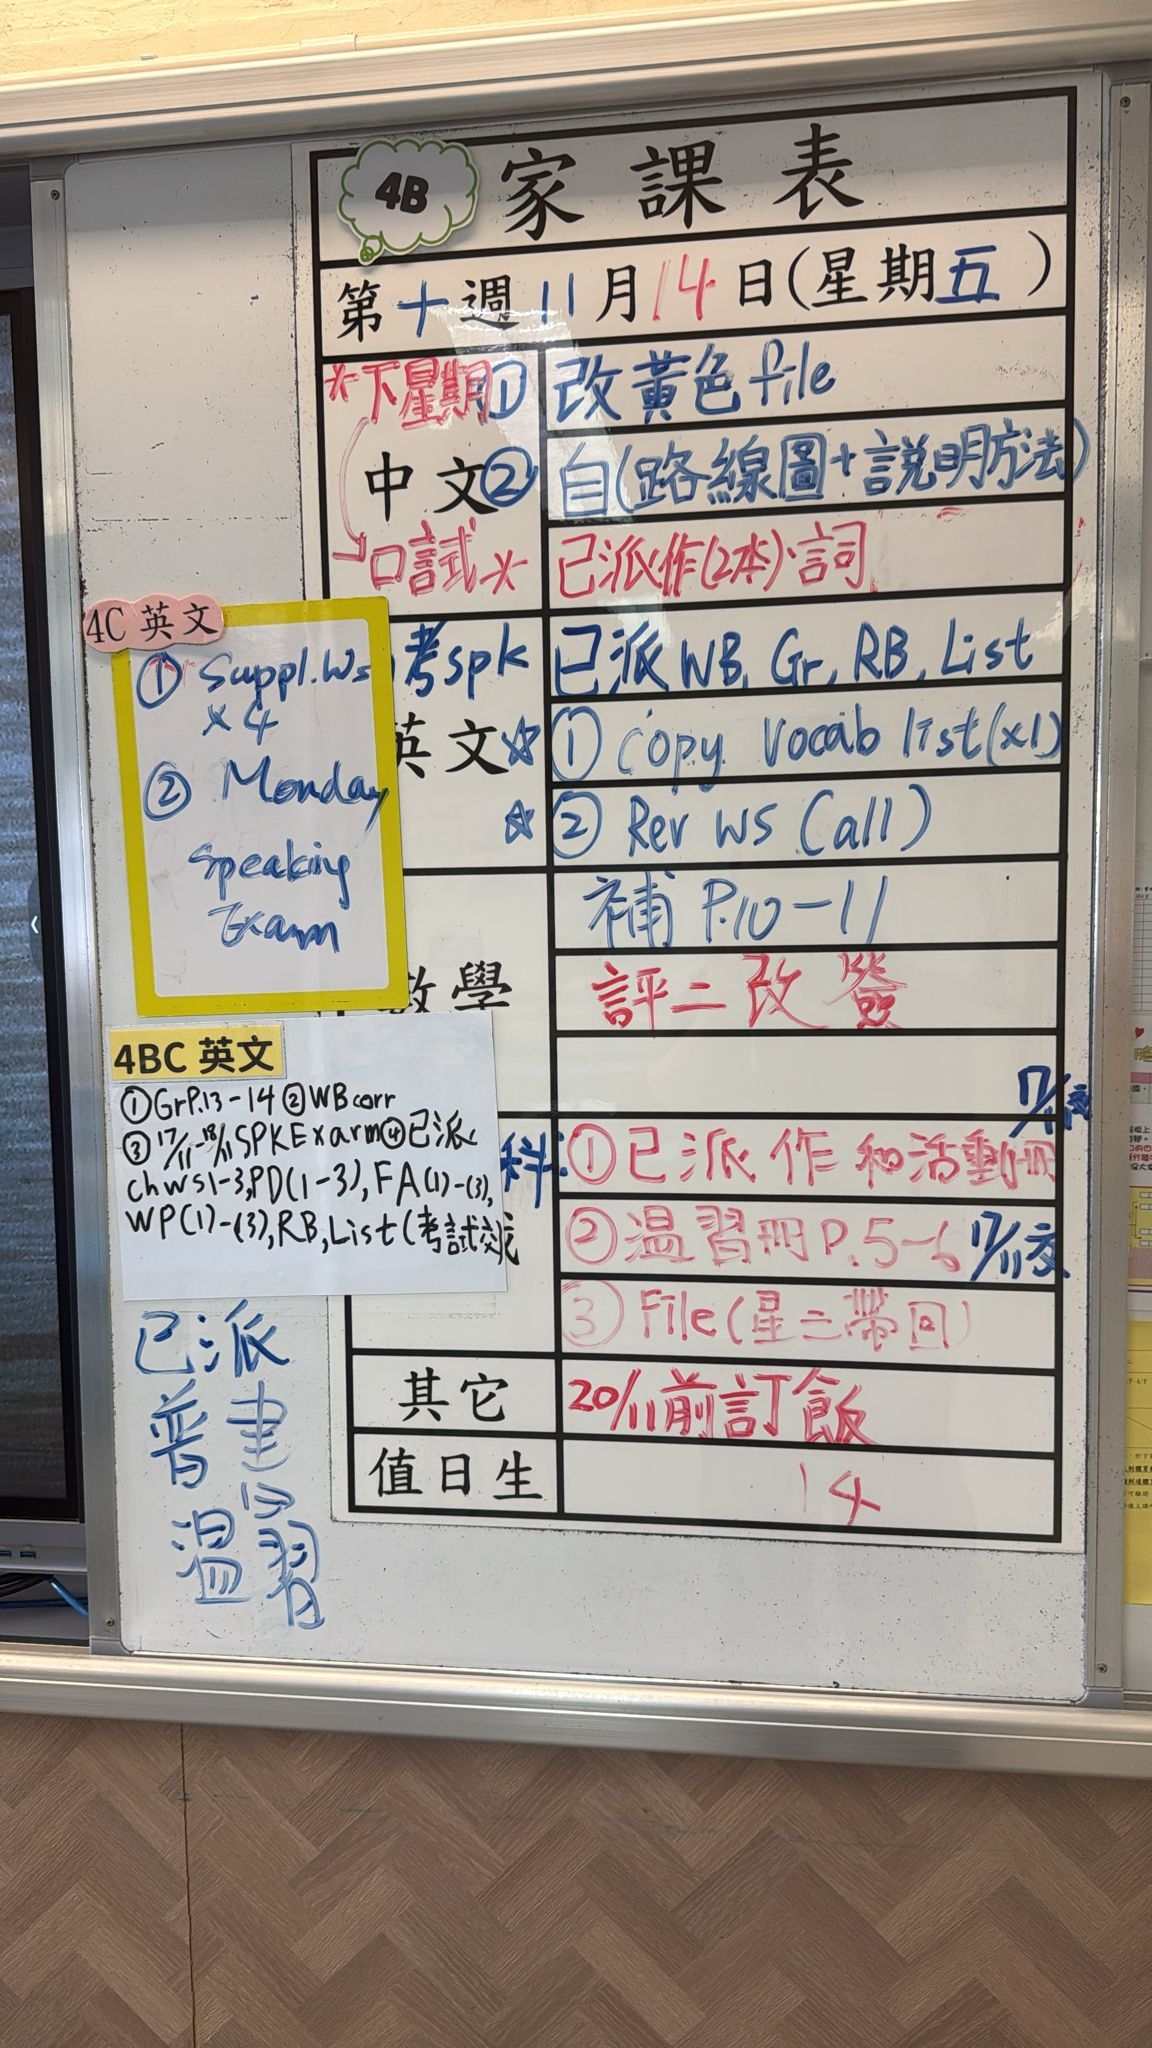 4B 家課表
第十週 11月14日(星期五)
*下星期
中文
口試*
① 改黃色file
② 自(路線圖+說明方法)
已派作(2本)、詞
考spk
英文
已派 WB, Gr, RB, List
☆ ① Copy Vocab list(x1)
☆ ② Rev WS (all)
數學
補 P.10-11
評二改簽
17/11交
科:
① 已派作和活動冊
② 溫習冊 P.5-6 17/11交
③ File(星三帶回)
其它
20/11前訂飯
值日生
14
4C 英文
① Suppl. Ws
x 4
② Monday
Speaking
Exam
4BC 英文
①GrP.13-14 ②WB corr
③ 17/11-18/11 SPK Exam ④已派
ch ws 1-3, PD(1-3), FA(1)-(3),
WP(1)-(3), RB, List (考試交)
已派
普
溫習